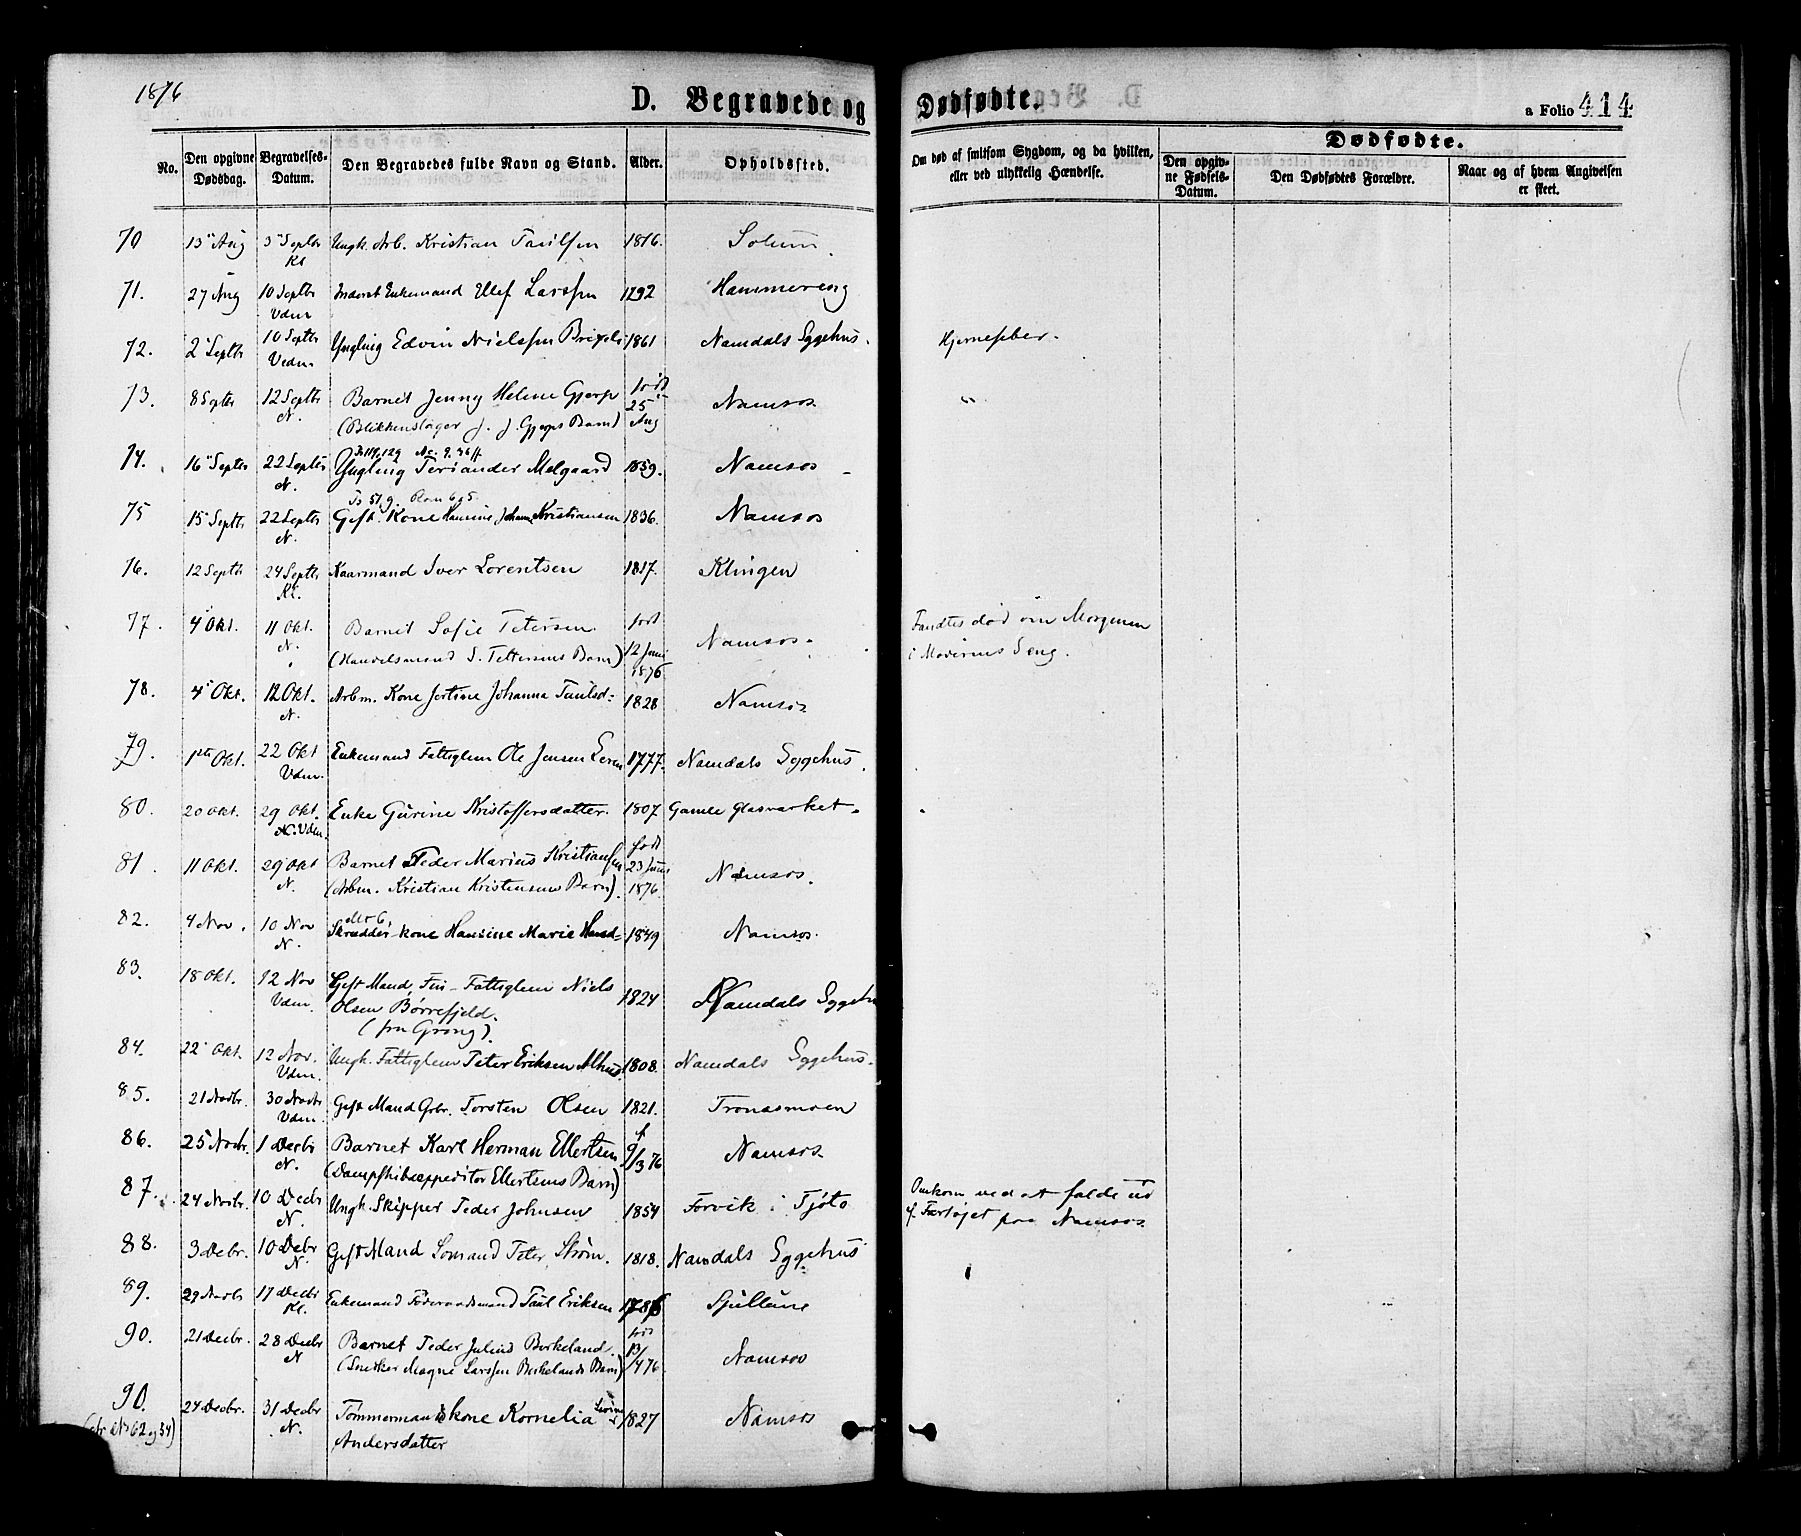 1876
D. Begravede og Dødfødte.
a Folio 414
No.
Den opgivne Dødsdag.
Begravelses-Datum.
Den Begravedes fulde Navn og Stand.
Alder.
Opholdssted.
Om død af smitsom Sygdom, og da hvilken, eller ved ulykkelig Hændelse.
Dødfødte.
Den opgivne Fødsels-Datum.
Den Dødfødtes Forældre.
Naar og af hvem Angivelsen er skeet.
70 13 Aug 3 Septbr Kl Ungk. Arb. Kristian Paulsen 1816. Solum
71. 27 Aug 10 Septbr Vdm Inderst Enkemand Ellef Larssen 1792 Hammereng
72. 2 Septbr 10 Septbr Vedm. Yngling Edvin Nielssen 1861 Namdals Sygehus. Hjernefeber.
73. 8 Septbr 12 Septbr N. Barnet Jenny Helene Gjerp født 25 Aug Namsos "
(Blikkenslager J. J. Gjerps Barn)
74. 16 Septbr 22 Septbr N. Yngling Feriander Melgaard 1859. Namsos
75 15 Septbr 22 Septbr N. Gift Kone Hansine Johanne Kristiansen 1836. Namsos
76. 12 Septbr 24 Septbr Kl. Kaarmand Iver Lorentsen 1817. Klingen
77. 4 Okt. 11 Okt. N. Barnet Sofie Petersen født 12 Juni 1876 Namsos. Fandtes død om Morgenen
(Handelsmand S. Pettersens Barn) i Moderens Seng.
78. 4 Okt. 12 Okt. N. Arbm. Kone Jertine Johanna Paulsd. 1828 Namsos
79. 1ste Okt. 22 Okt Vdm. Enkemand Fattiglem Ole Jensen 1777. Namdals Sygehus.
80. 20 Okt. 29 Okt. N. Vdm. Enke Gurine Kristoffersdatter. 1807. Gamle Glasværket
81. 11 Okt. 29 Okt N. Barnet Peder Marius Kristiansen født 23 Juni 1876. Namsos.
(Arbm. Kristian Kristensens Barn).
82. 4 Nov. 10 Nov N. Skrædderkone Hansine Marie Hansd. 1849 Namsos.
83. 18 Okt. 12 Nov Vdm. Gift Mand, Fin- Fattiglem Niels 1824 Namdals Sygehus
Olsen Børrefjeld.
(fra Grong).
84. 22 Okt. 12 Nov. Vdm. Ungk. Fattiglem Peter Eriksen 1808. Namdals Sygehus.
85. 21 Novbr. 30 Novbr Vdm. Gift Mand Gbr. Torsten Olsen 1821. Tronesmoen
86. 25 Novbr. 1 Decbr N. Barnet Karl Herman Ellertsen f 9/3 76 Namsos.
(Dampskibsexpeditør Ellertsens Barn)
87. 24 Novbr. 10 Decbr N. Ungk. Skipper Peder Johnsen 1854 Forvik i Tjøto Omkom ved at falde ud
af Fartøjet paa Namsos.
88. 3 Debr. 10 Debr N. Gift Mand Lomand Peter Strøm. 1818. Namdals Sygehus
89. 29 Novbr 17 Decbr Kl. Enkemand Føderaadsmand Paul Eriksen 1786 Spillum
90. 21 Decbr. 28 Decbr N Barnet Peder Julius Birkeland. født 13/4 76. Namsos
(Snekker Magne Larssen Birkelands Barn)
90. 24 Decbr. 31 Decbr N. Tømmermandskone Kornelia 1827 Namsos
(cfr No 62 og 54) Andersdatter